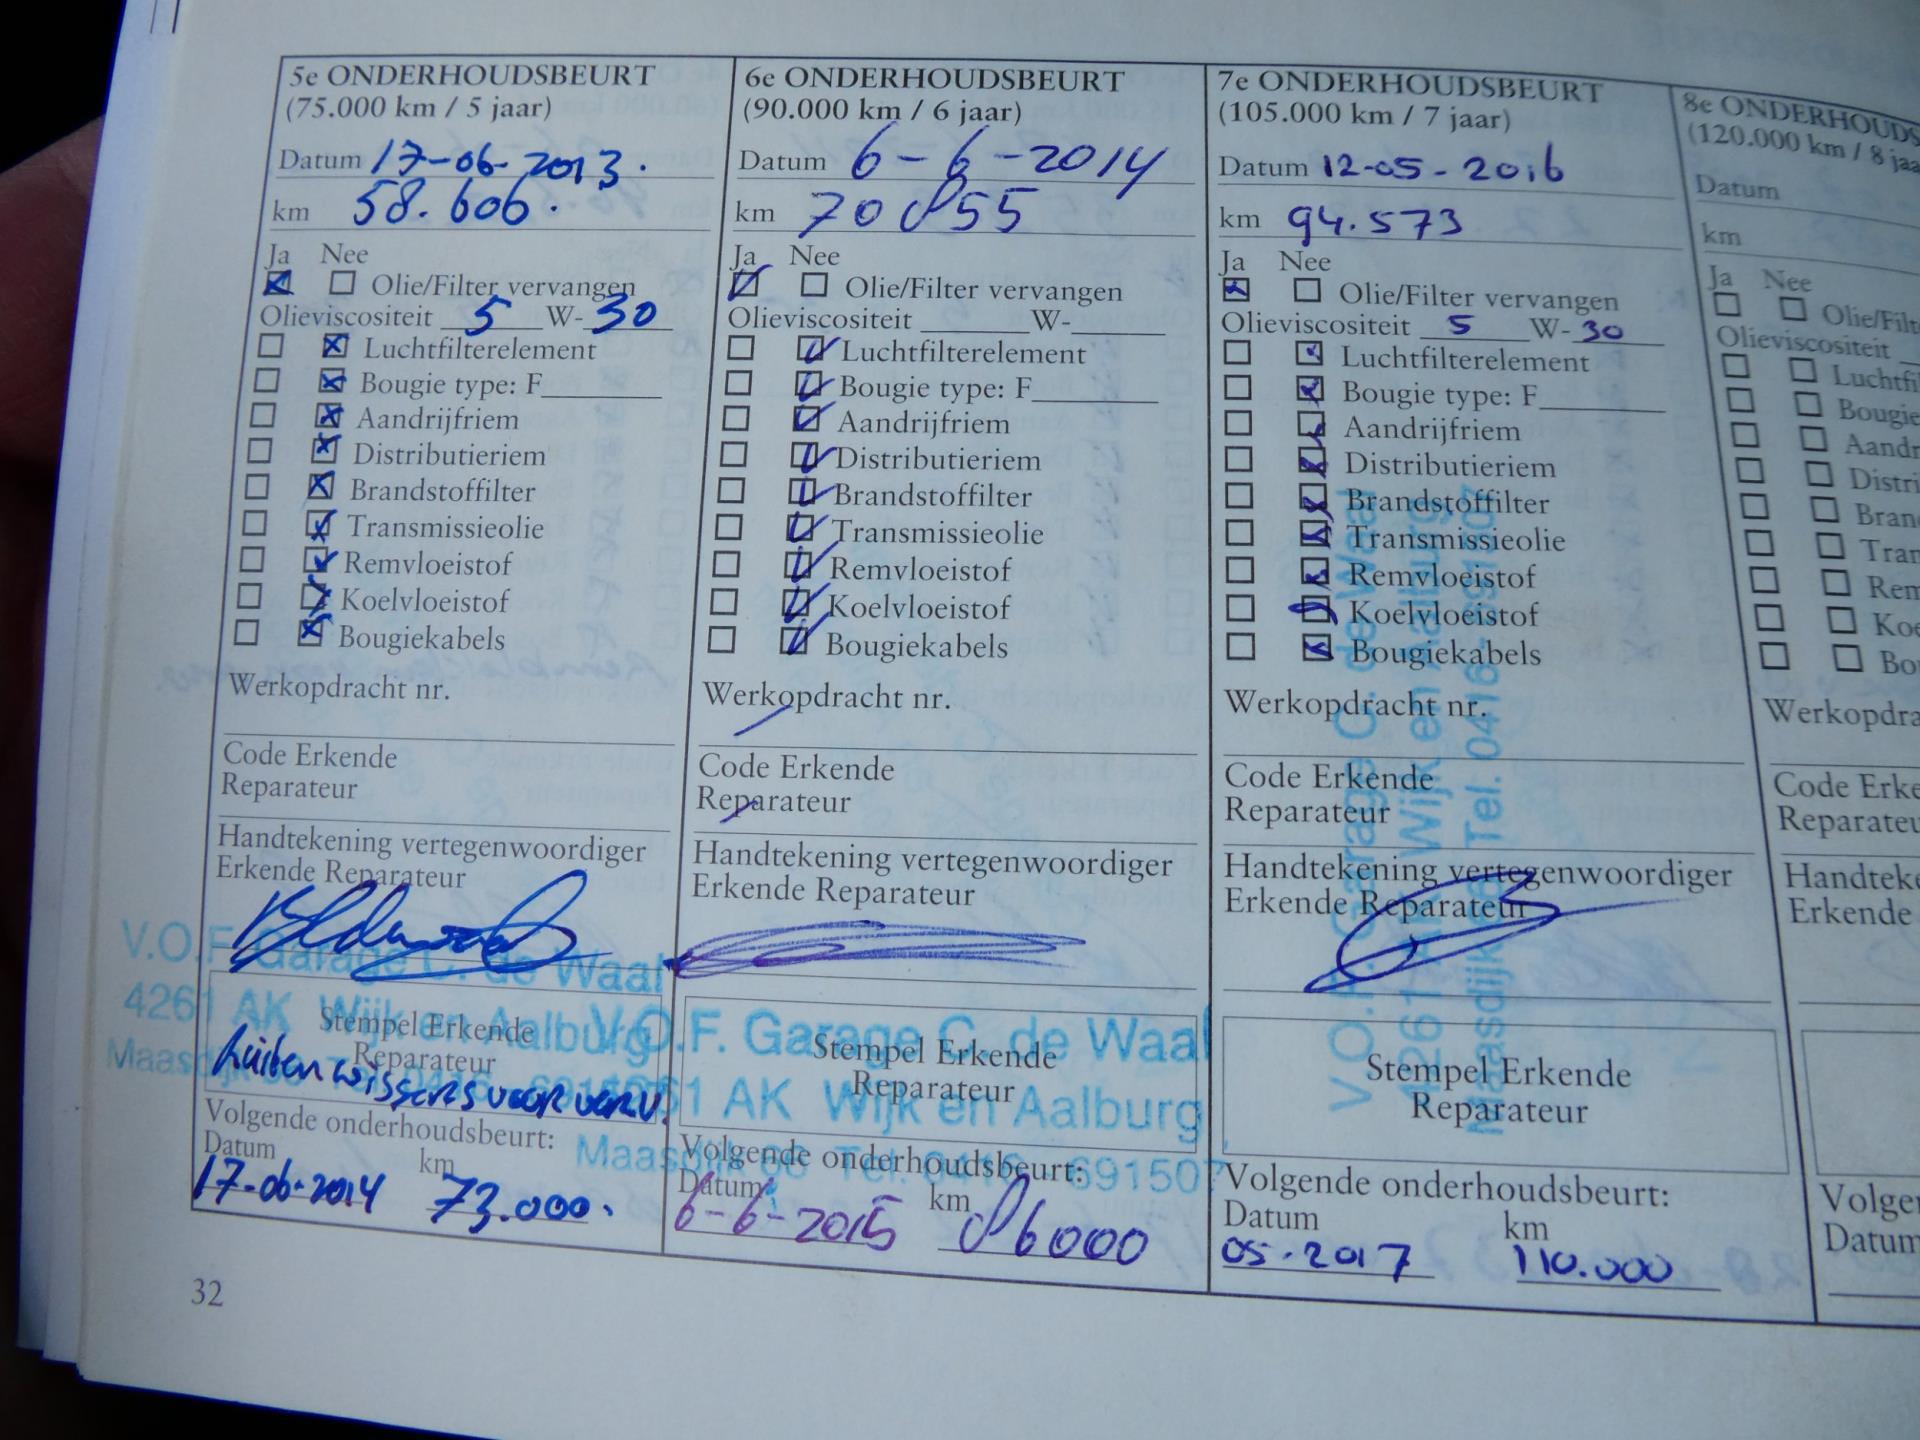 5e ONDERHOUDSBEURT
(75.000 km / 5 jaar)
Datum 17-06-2013.
km 58.606.
Ja Nee
Olie/Filter vervangen
Olieviscositeit 5 W-30
Luchtfilterelement
Bougie type: F
Aandrijfriem
Distributieriem
Brandstoffilter
Transmissieolie
Remvloeistof
Koelvloeistof
Bougiekabels
Werkopdracht nr.
Code Erkende
Reparateur
Handtekening vertegenwoordiger
Erkende Reparateur
V.O.F. Garage C. de Waal
4261 AK Wijk en Aalburg
Stempel Erkende
Reparateur
Ruitenwissers voor verv.
Volgende onderhoudsbeurt:
Datum km
17-06-2014 73.000.
32
6e ONDERHOUDSBEURT
(90.000 km / 6 jaar)
Datum 6-6-2014
km 70855
Ja Nee
Olie/Filter vervangen
Olieviscositeit W-
Luchtfilterelement
Bougie type: F
Aandrijfriem
Distributieriem
Brandstoffilter
Transmissieolie
Remvloeistof
Koelvloeistof
Bougiekabels
Werkopdracht nr.
Code Erkende
Reparateur
Handtekening vertegenwoordiger
Erkende Reparateur
V.O.F. Garage C. de Waal
Stempel Erkende
Reparateur
4261 AK Wijk en Aalburg
Volgende onderhoudsbeurt:
Datum km
6-6-2015 86000
7e ONDERHOUDSBEURT
(105.000 km / 7 jaar)
Datum 12-05-2016
km 94.573
Ja Nee
Olie/Filter vervangen
Olieviscositeit 5 W-30
Luchtfilterelement
Bougie type: F
Aandrijfriem
Distributieriem
Brandstoffilter
Transmissieolie
Remvloeistof
Koelvloeistof
Bougiekabels
Werkopdracht nr.
Code Erkende
Reparateur
Handtekening vertegenwoordiger
Erkende Reparateur
V.O.F. Garage C. de Waal
4261 AK Wijk en Aalburg
Stempel Erkende
Reparateur
Volgende onderhoudsbeurt:
Datum km
05-2017 110.000
8e ONDERHOUDS
(120.000 km / 8 jaa
Datum
km
Ja Nee
Olie/Filt
Olieviscositeit
Luchtfi
Bougie
Aandr
Distri
Bran
Tran
Rem
Koe
Bo
Werkopdra
Code Erke
Reparateu
Handteke
Erkende
Volge
Datum